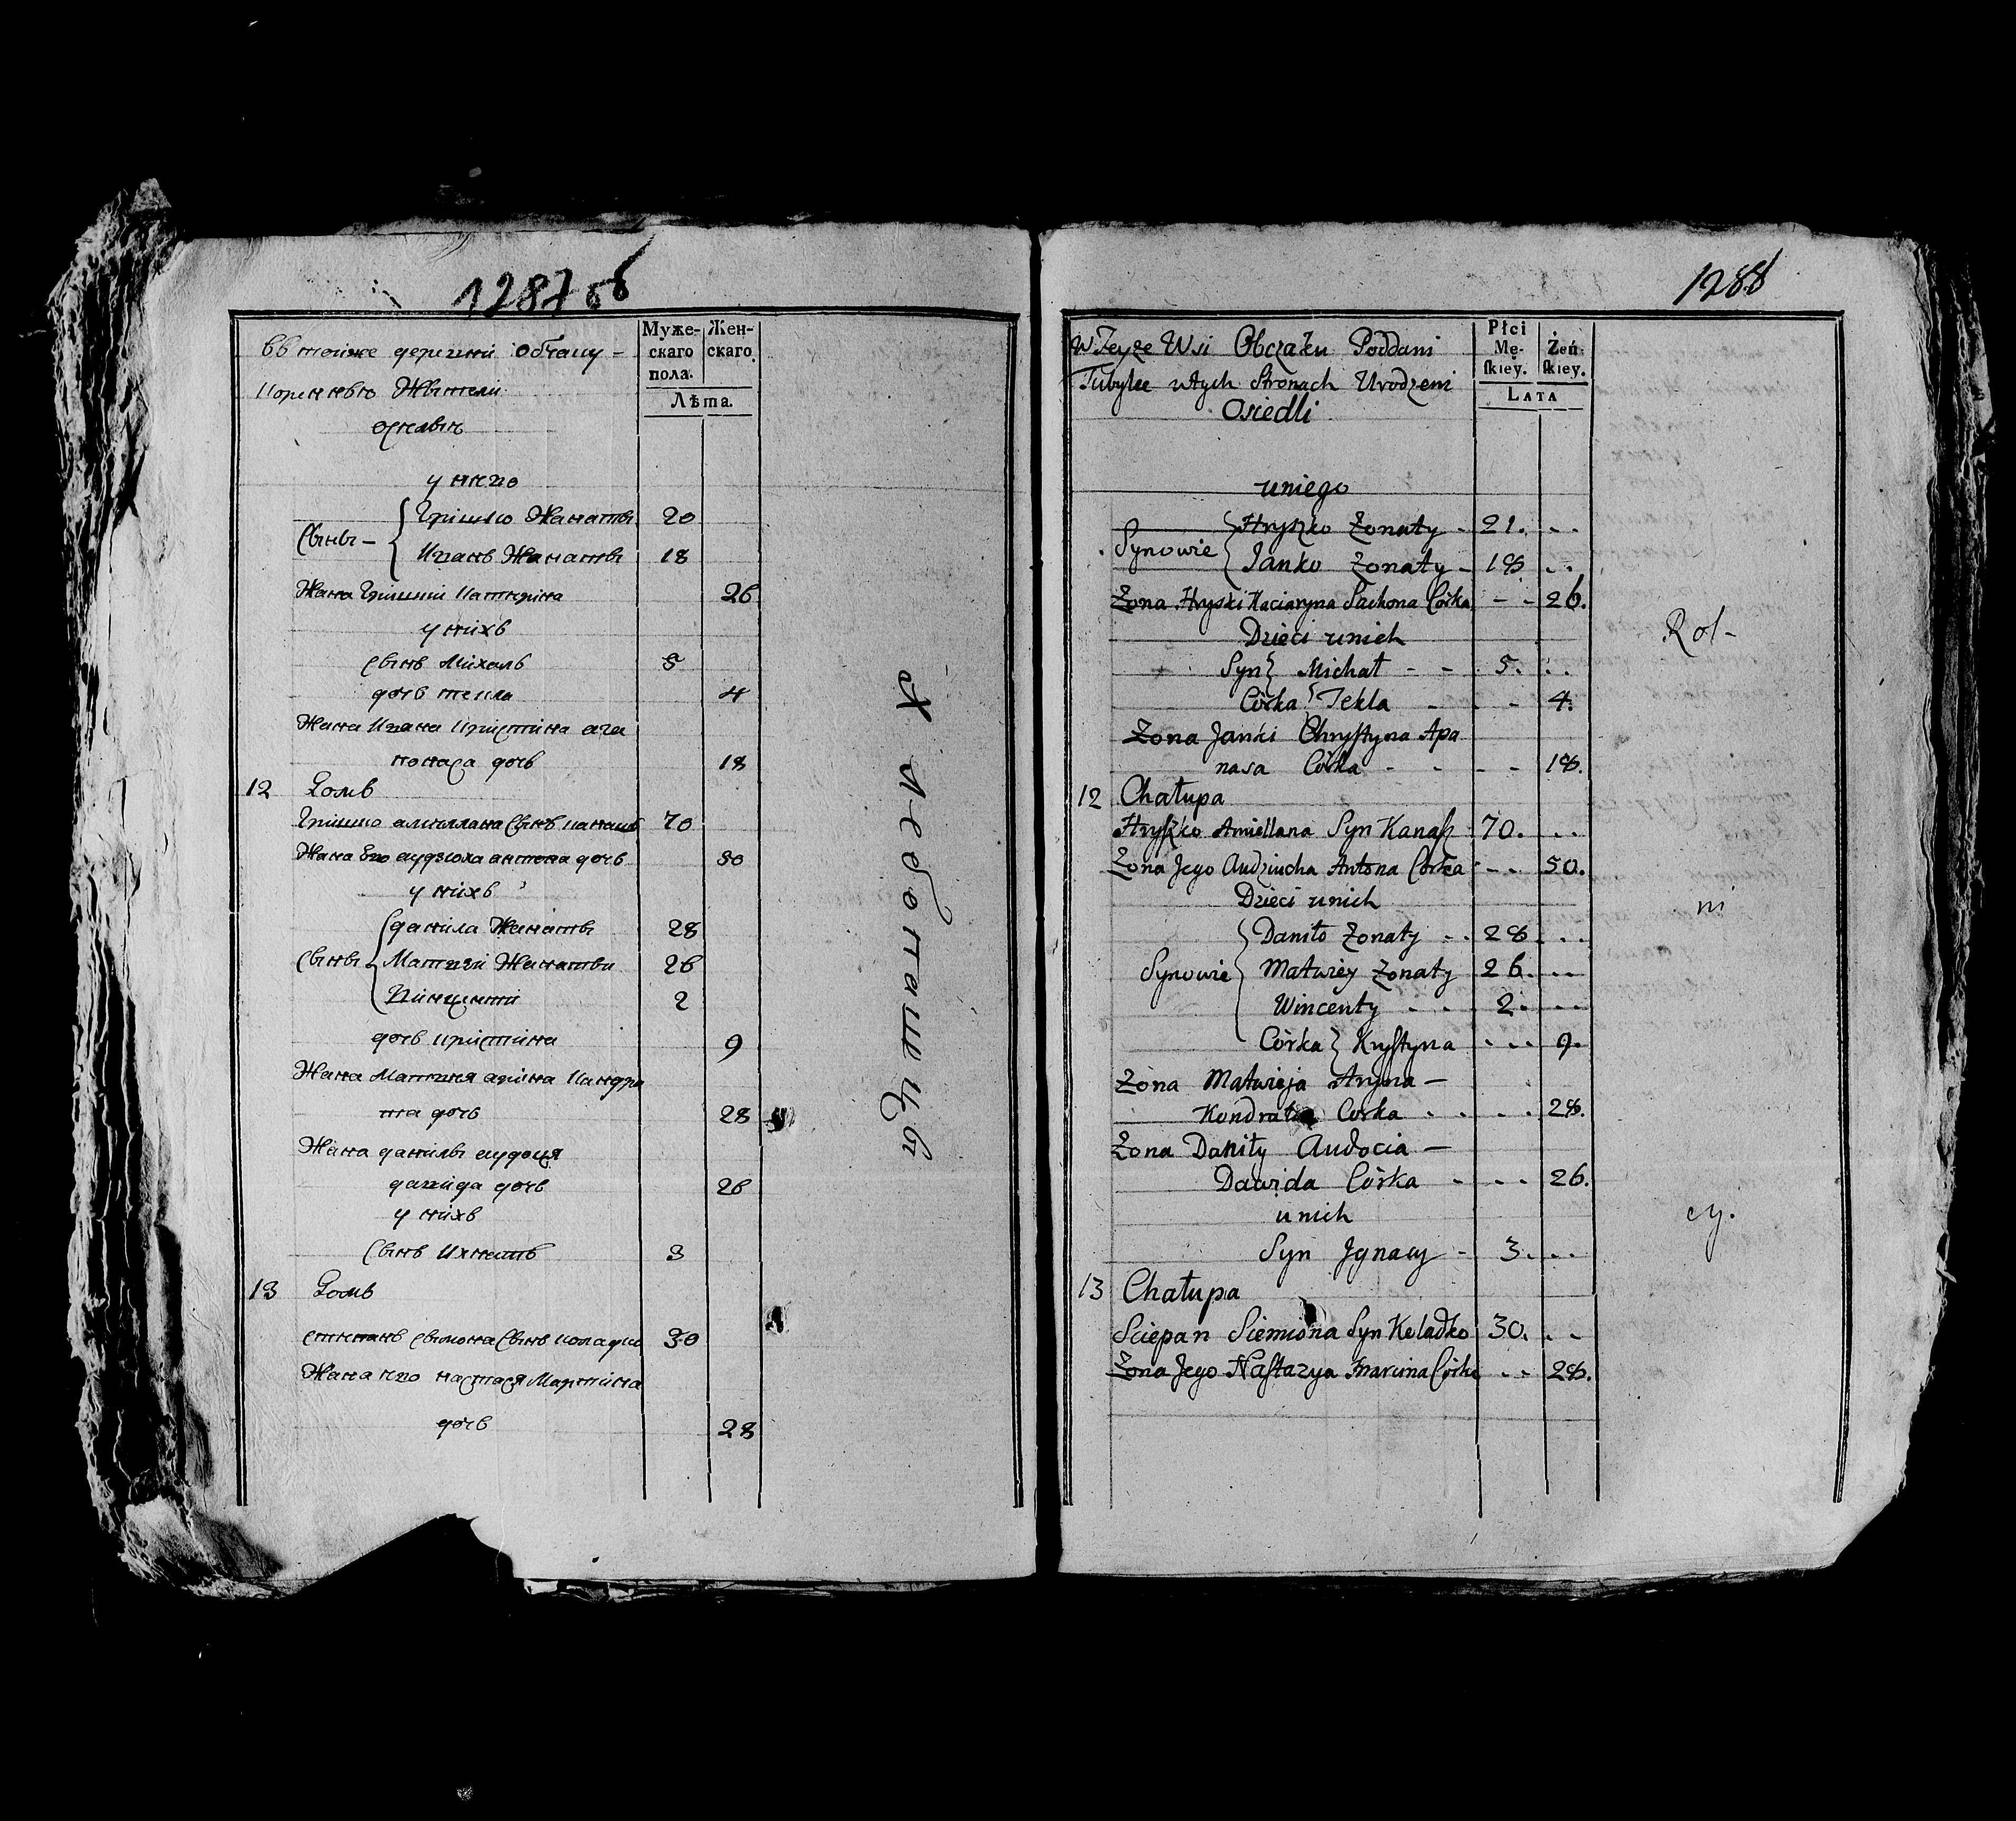 1287 об
Муже-
скаго
пола.
Жен-
скаго.
Лѣта.
въ тойже деревни Обчаку -
коренные Жытели
оселыи
у него
Сыны - Гришко Жанаты 20
Иванъ Жанаты 18
Жана Гришки катерина 26
у нихъ
Сынъ Михалъ 5
дочъ текла 4
Жана Ивана Кристина апа
нонаса дочъ 18
12 Домъ
Гришко амиллана Сынъ канашъ 70
Жана Его аудзюха антона дочъ 50
у нихъ
сыны данила Жанаты 28
Матвей Жанаты 26
Винценти 2
дочъ кристина 9
Жана Матвея арина Кандра
та дочъ 28
Жана данилы аудоця
давида дочъ 26
у нихъ
Сынъ Ихнатъ 3
13 Домъ
степанъ сымона Сынъ коладко 30
Жана его настася Мартина
дочъ 28
Хлебопашцы
1288
Płci
Mę-
ſkiey.
Żeń-
ſkiey.
LATA
W Teyże Wsi Obczaku Poddani
Tubylce w tych Stronach Urodzeni
Osiedli
u niego
Synowie Hryszko Żonaty - 21.
Janko Żonaty - 18
Żona Hryszki Kaciaryna Sachona Córka - - 26.
Dzieci u nich
Syn Michał - - 5.
Córka Tekla - - - 4.
Żona Janki Chrystyna Apa
nasa Córka - - - - 18.
12 Chałupa
Hryszko Amiellana Syn Kanasz 70.
Żona Jego Audziucha Antona Córka - - 50.
Dzieci u nich
Synowie Daniło Żonaty 28
Matwiey Żonaty 26
Wincenty 2
Córka Krystyna 9
Żona Matwieja Aryna -
Kondrata Córka 28.
Żona Daniły Audocia -
Dawida Córka 26.
u nich
Syn Jgnacy - 3.
13 Chałupa
Sciepan Siemiona Syn Keladko 30.
Żona Jego Nastazya Marcina Córka 28.
Rol-
ni
cy.